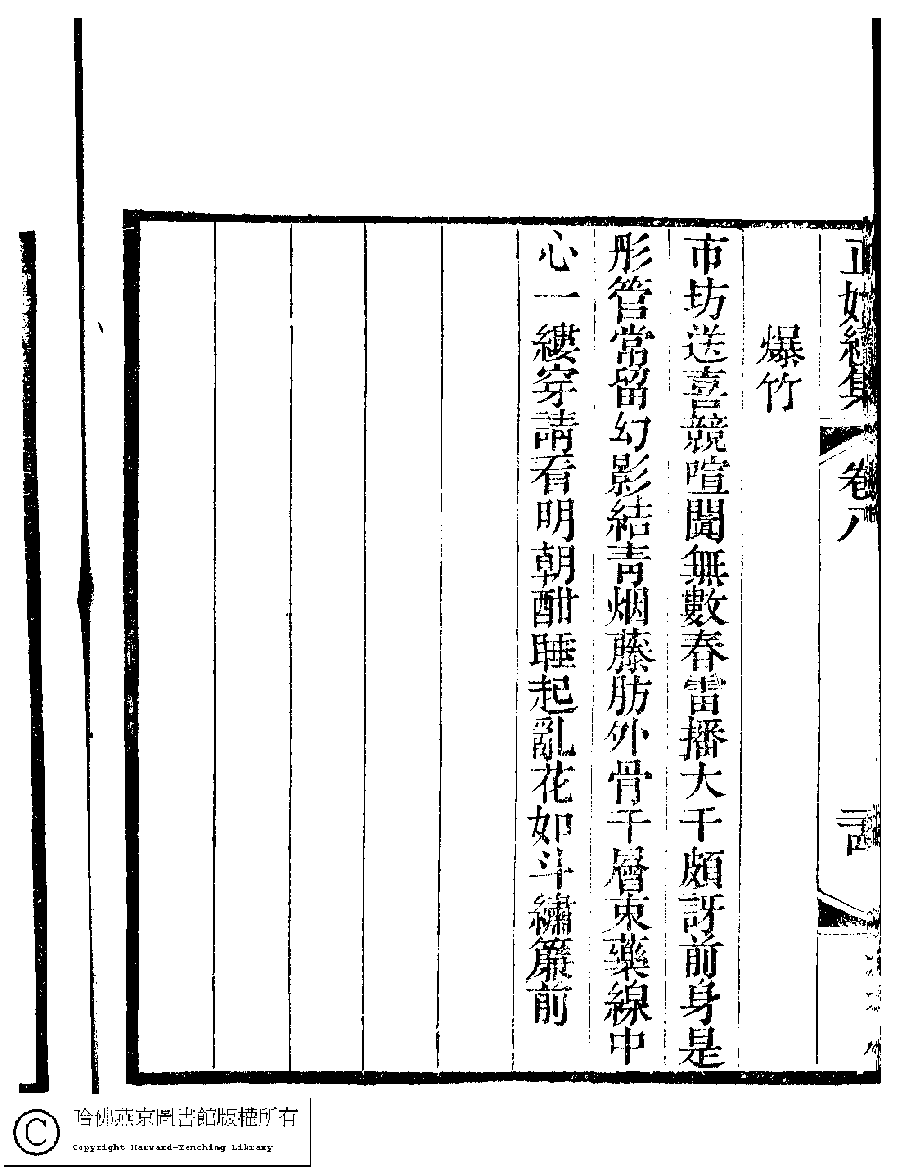 正始續集 卷八
爆竹
市坊送喜競喧闐無數春雷播大千頗訝前身是
彤管常留幻影結青烟藤肪外骨千層束藥線中
心一縷穿請看明朝酣睡起亂花如斗繡簾前
哈佛燕京圖書館版權所有
Copyright Harvard-Yenching Library